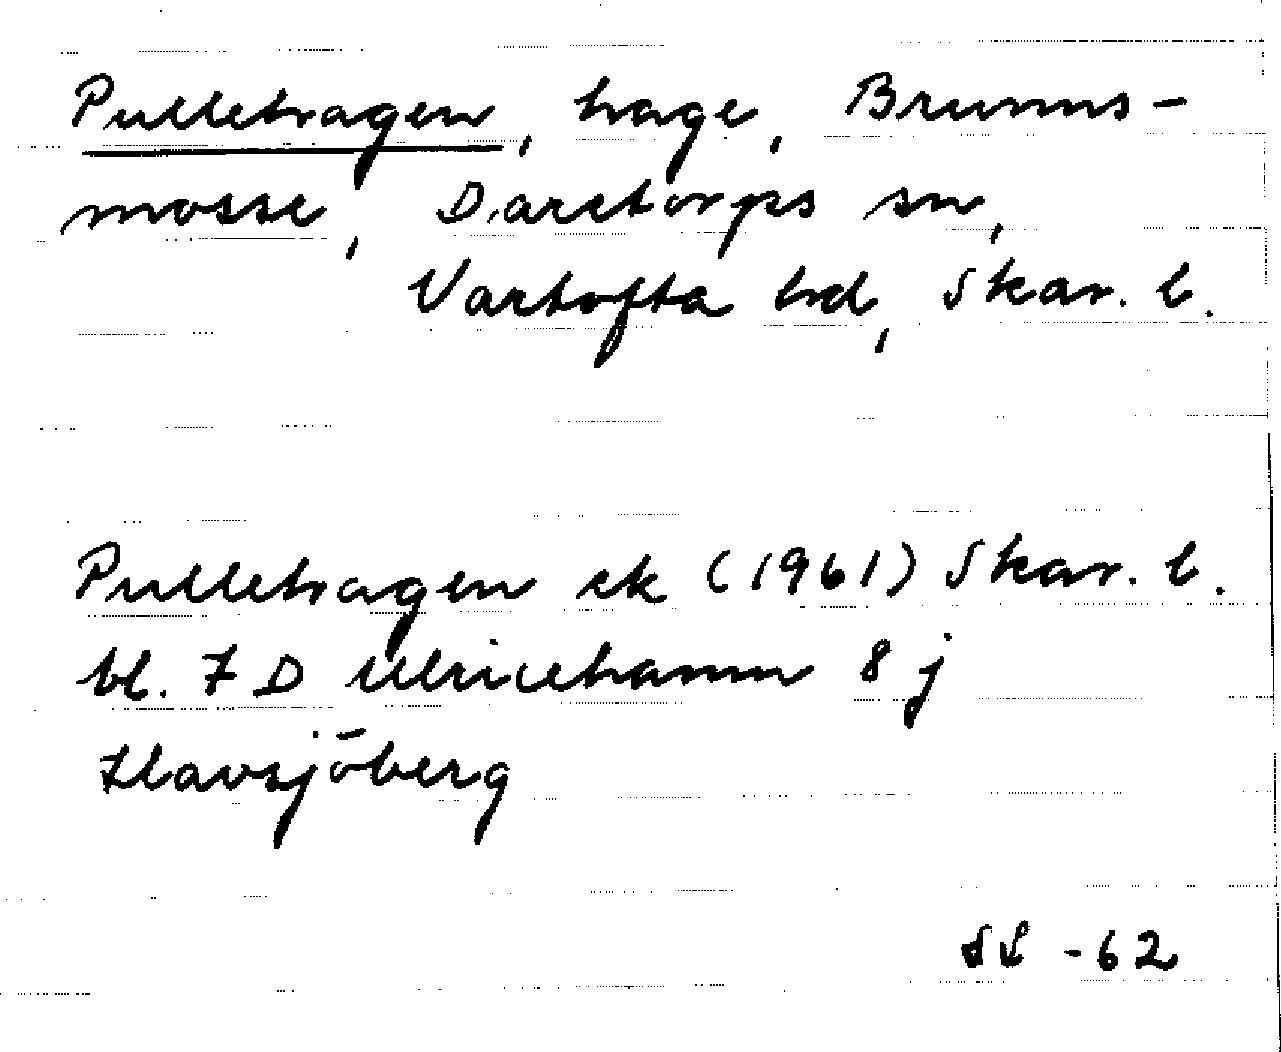 Pullehagen, hage, Brunns-
mosse, Daretorps sn,
Vartofta hd, Skar. l.
Pullehagen ek (1961) Skar. l.
bl. 7 D Ulricehamn 8 j
Havsjöberg
SL -62